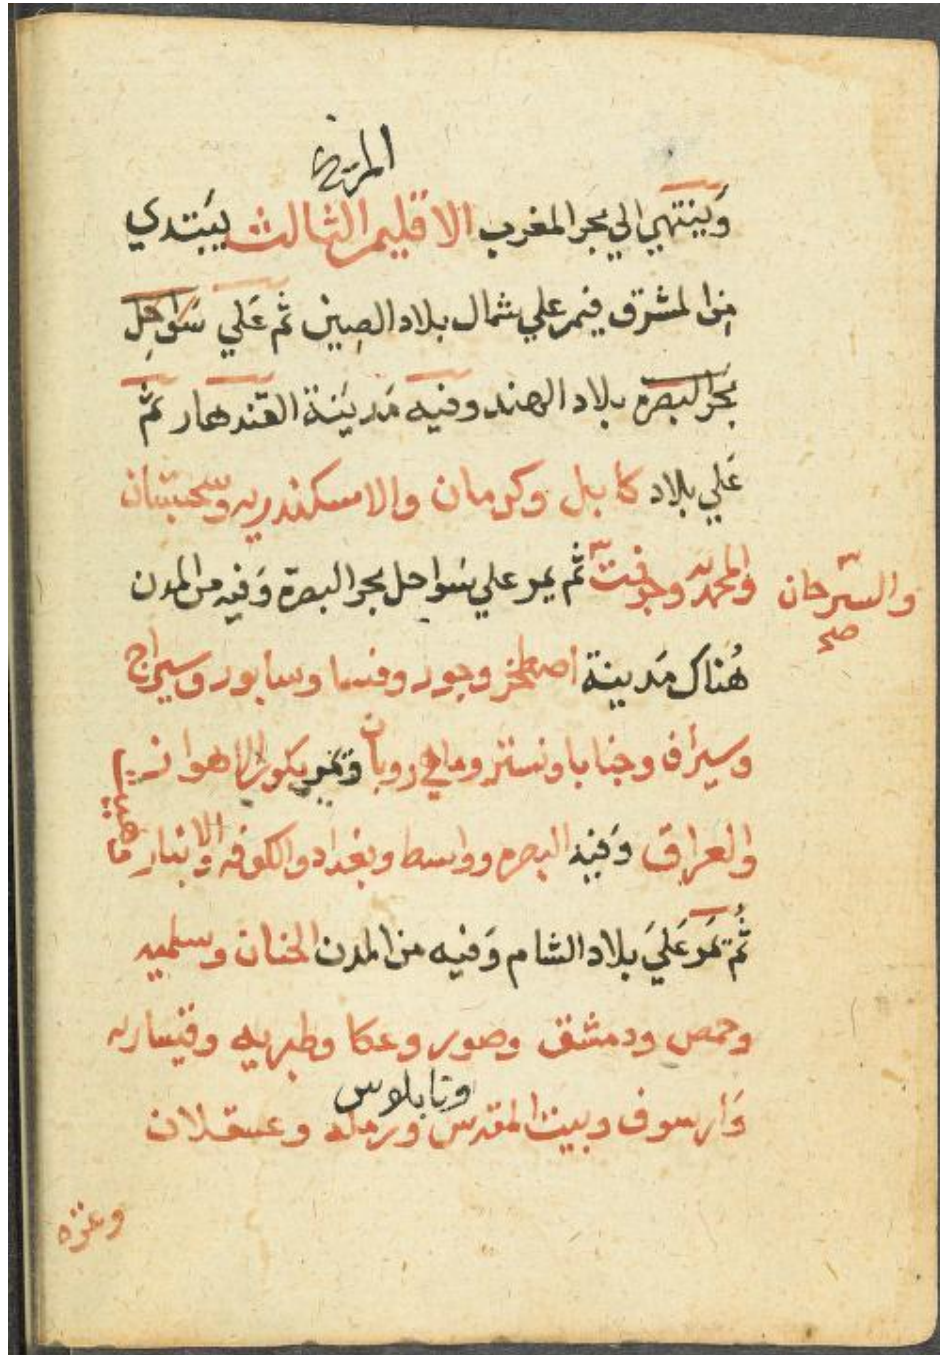 المريخ
وَينتهي الي بحر المغرب الاقليم الثالث يبَتدي
من المشرق فيمر علي شمال بلاد الصين ثم عَلي سَواحِل
بَحر البصره بلاد الهند وفيه مَدينَة القندهار ثمَّ
عَلي بلاد كابل وكرمان والاسكندريه وسجستان
والمحمديّه وجرفتّ ثم يمر علي سَواحل بحر البصرة وَفيه من المدن
والسّيرجان
صح
هُناك مَدينة اصطخر وجور وفسا وسابور وشيراج
وسيراف وجنابا وتستر وماهي روبان وَتمر بكور الاهواز
والعراق وَفيه البصره وواسط وبغداد والكوفه والانبار
ثُم تمَر عَليَ بلاد الشام وَفيه من المدن وسلميه
وحمص ودمشق وصور وعكا وطبريه وقيساريه
وَارسوف وبيت المقدس ورمله وعسقلان
ونابلاس
وغزه